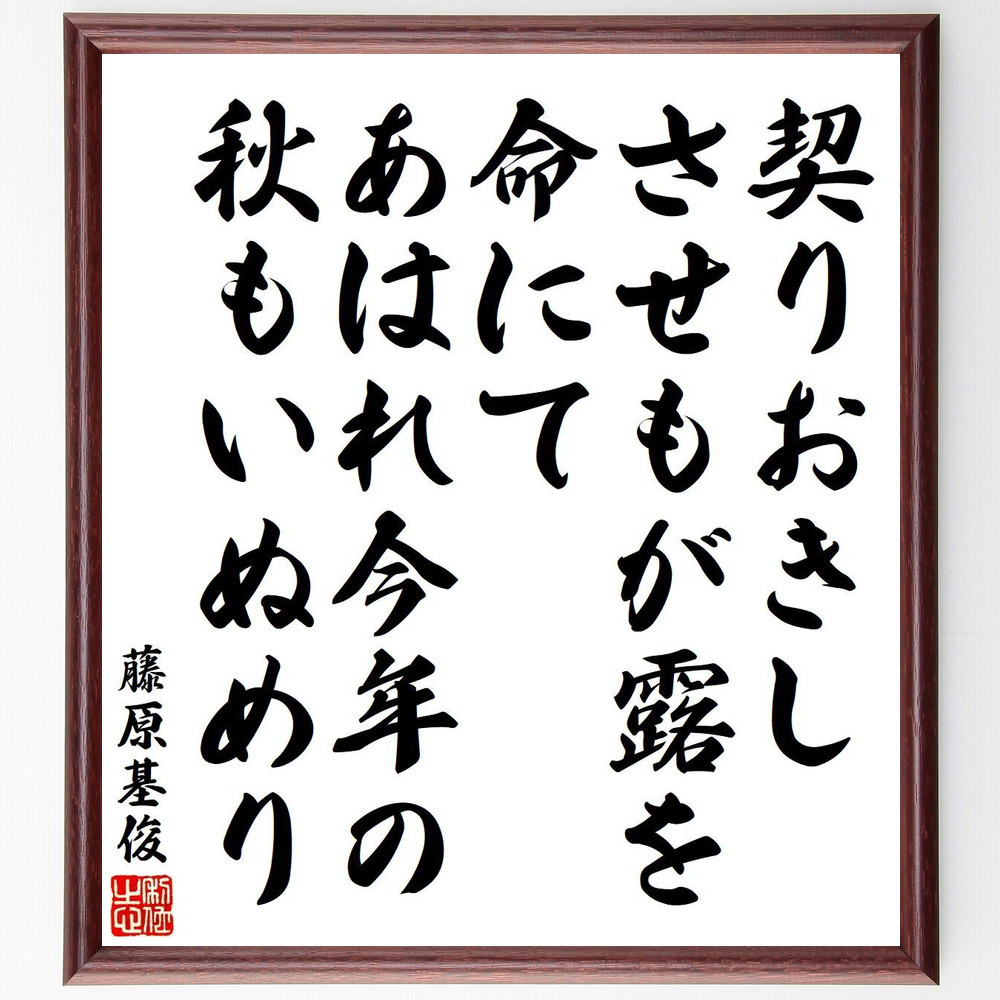 契りおきし
させもが露を
命にて
あはれ今年の
秋もいぬめり
藤原基俊